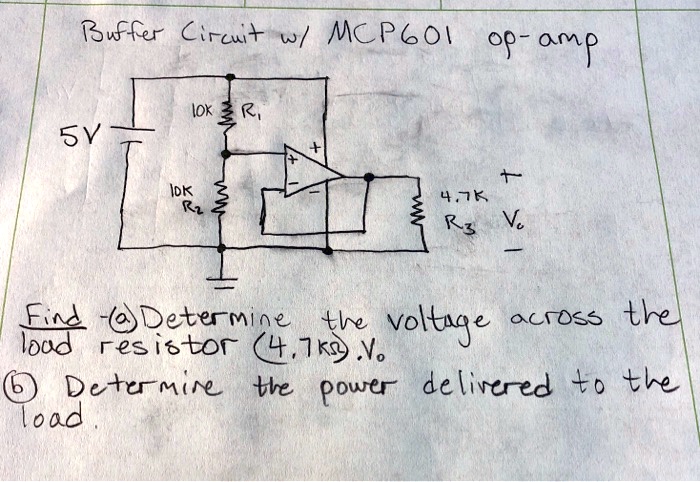 Buffer Circuit w/ MCP601 op-amp
10K R1
5V
+
+
-
-
10K
R2
4.7K
R3
+
Vo
-
Find -(a) Determine the voltage across the
load resistor (4.7KΩ). Vo
(b) Determine the power delivered to the
load.